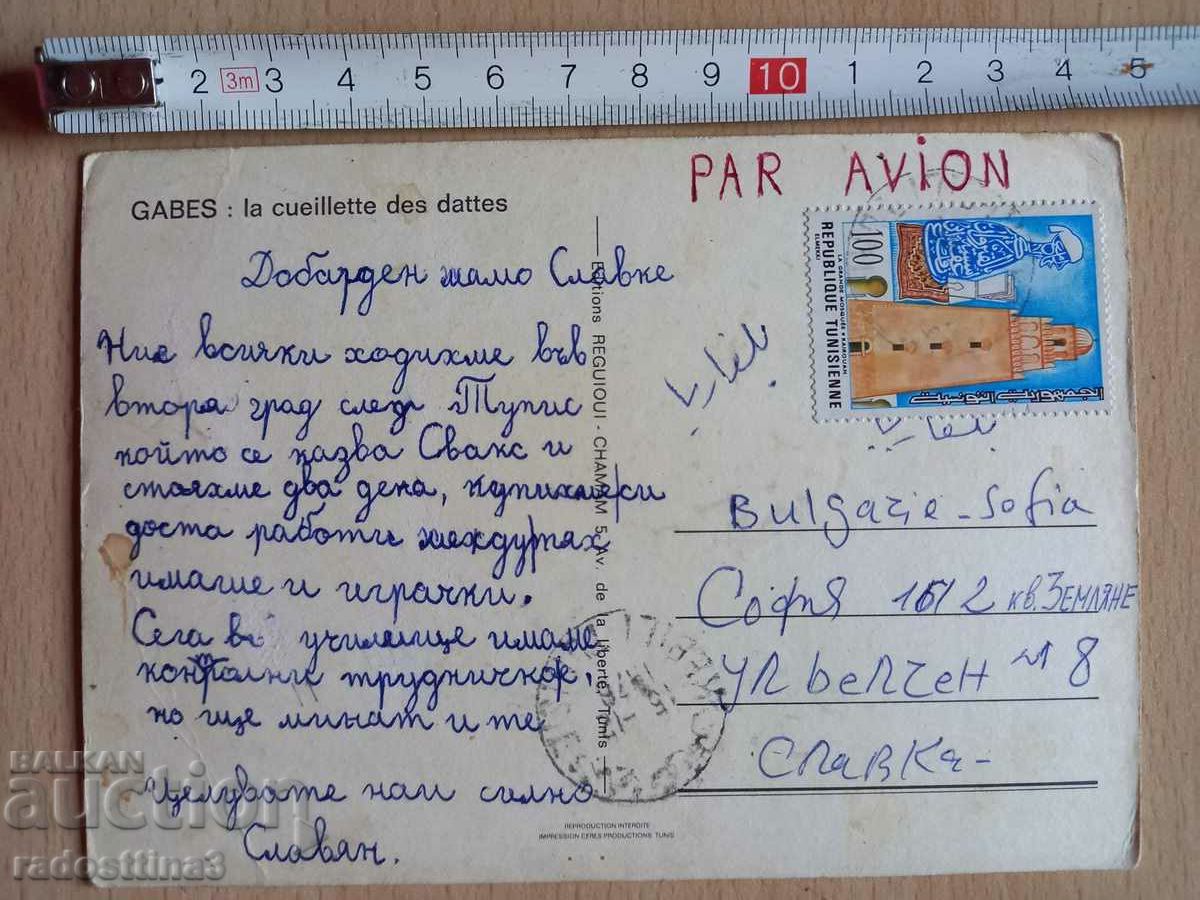 2 3m 3 4 5 6 7 8 9 10 1 2 3 4 5
PAR AVION
GABES : la cueillette des dattes
Добарден жамо Славке
Ние всички ходихме във
втора град след Тунис
който се казва Свакс и
стояхме два дена, купихме си
доста работи между тях
имагие и играчки.
Сега в училище имаме
контролни трудничкое,
но ще минат и те
Целувате наи силно
Славян.
Editions REGUIOUI - CHAMAM 5, Av. de la liberté, Tunis
REPRODUCTION INTERDITE
IMPRESSION CERES PRODUCTIONS TUNIS
100
REPUBLIQUE TUNISIENNE
LA GRANDE MOSQUÉE • KAIROUAN
ELMEKKI
الجمهورية التونسية
بلغاريا
بلغاريا
Bulgarie - Sofia
СОФИЯ 1612 кв. ЗЕМЛЯНЕ
УЛ БЕЛЧЕН № 8
СЛАВКА -
BALKAN
auction
radosttina3